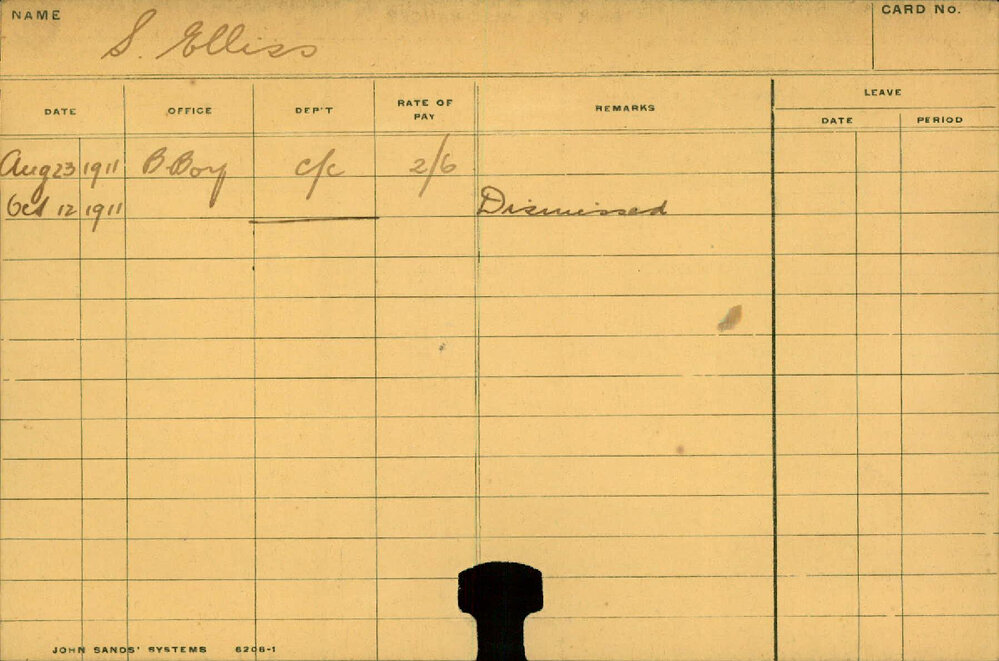 NAME S. Elliss CARD No.
DATE OFFICE DEP'T RATE OF PAY REMARKS LEAVE
DATE PERIOD
Aug 23 1911 B. Boy c/c 2/6
Oct 12 1911 Dismissed
JOHN SANDS' SYSTEMS 6206-1